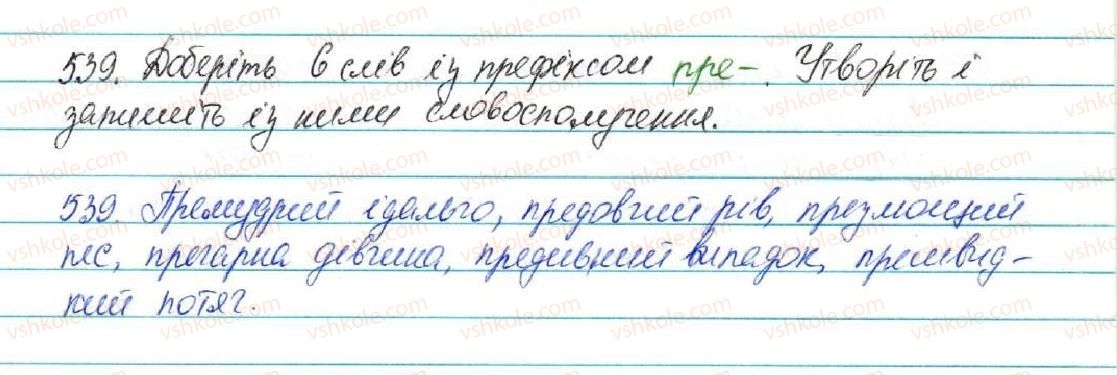 539. Доберіть 6 слів із префіксом пре-. Утворіть і
запишіть із ними словосполучення.
539. Премудрий ідальго, предовгий рів, презлющий
пес, прегарна дівчина, предивний випадок, прешвид-
кий потяг.